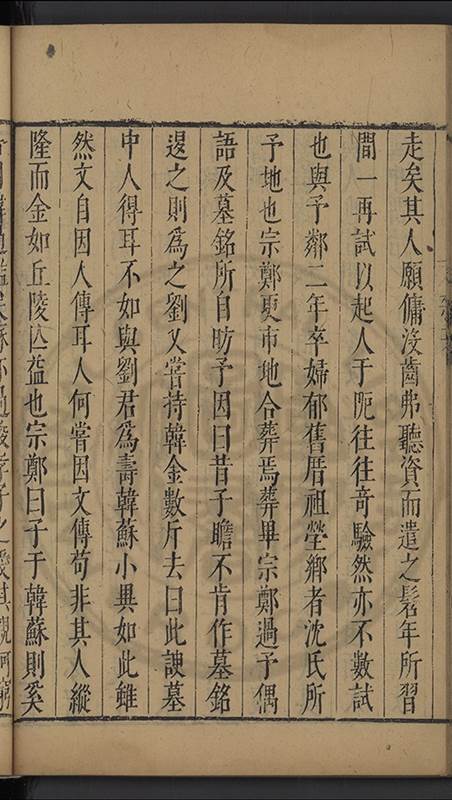 走矣其人願傭沒齒弗聽資而遣之髫年所習
間一再試以起人于阨往往奇驗然亦不數試
也與予鄰二年卒婦郁舊厝祖塋鄉者沈氏所
予地也宗鄭更市地合葬焉葬畢宗鄭過予偶
語及墓銘所自昉予因曰昔子瞻不肯作墓銘
退之則爲之劉乂嘗持韓金數斤去曰此諛墓
中人得耳不如與劉君爲壽韓蘇小異如此雖
然文自因人傳耳人何嘗因文傳苟非其人縱
隆而金如丘陵亾益也宗鄭曰子于韓蘇則奚